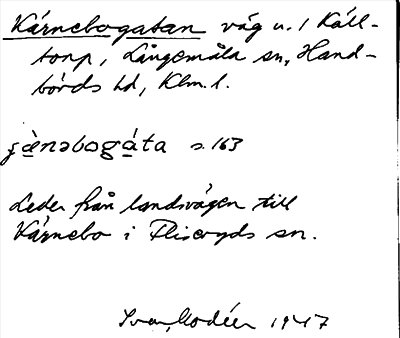 Kärnebogatan väg u. l Käll-
torp, Långemåla sn, Hand-
börds hd, Klm. l.
ʂæ̀nəbogáta s. 163
Leder från landsvägen till
Kärnebo i Fliseryds sn.
Ivar Modéer 1947